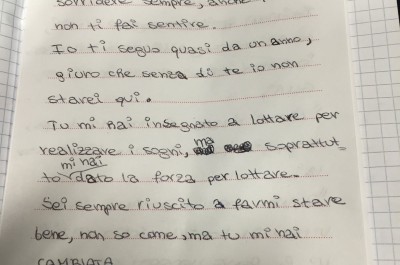 sorridere sempre, anche
non ti fai sentire.
Io ti seguo quasi da un anno,
giuro che senza di te io non
starei qui.
Tu mi hai insegnato a lottare per
realizzare i sogni, ma soprattut_
to mi hai dato la forza per lottare.
Sei sempre riuscito a farmi stare
bene, non so come, ma tu mi hai
CAMBIATA